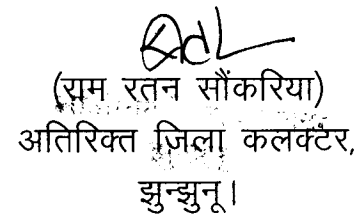 (राम रतन सौंकरिया)
अतिरिक्त ज़िला कलक्टर,
झुन्झुनू।